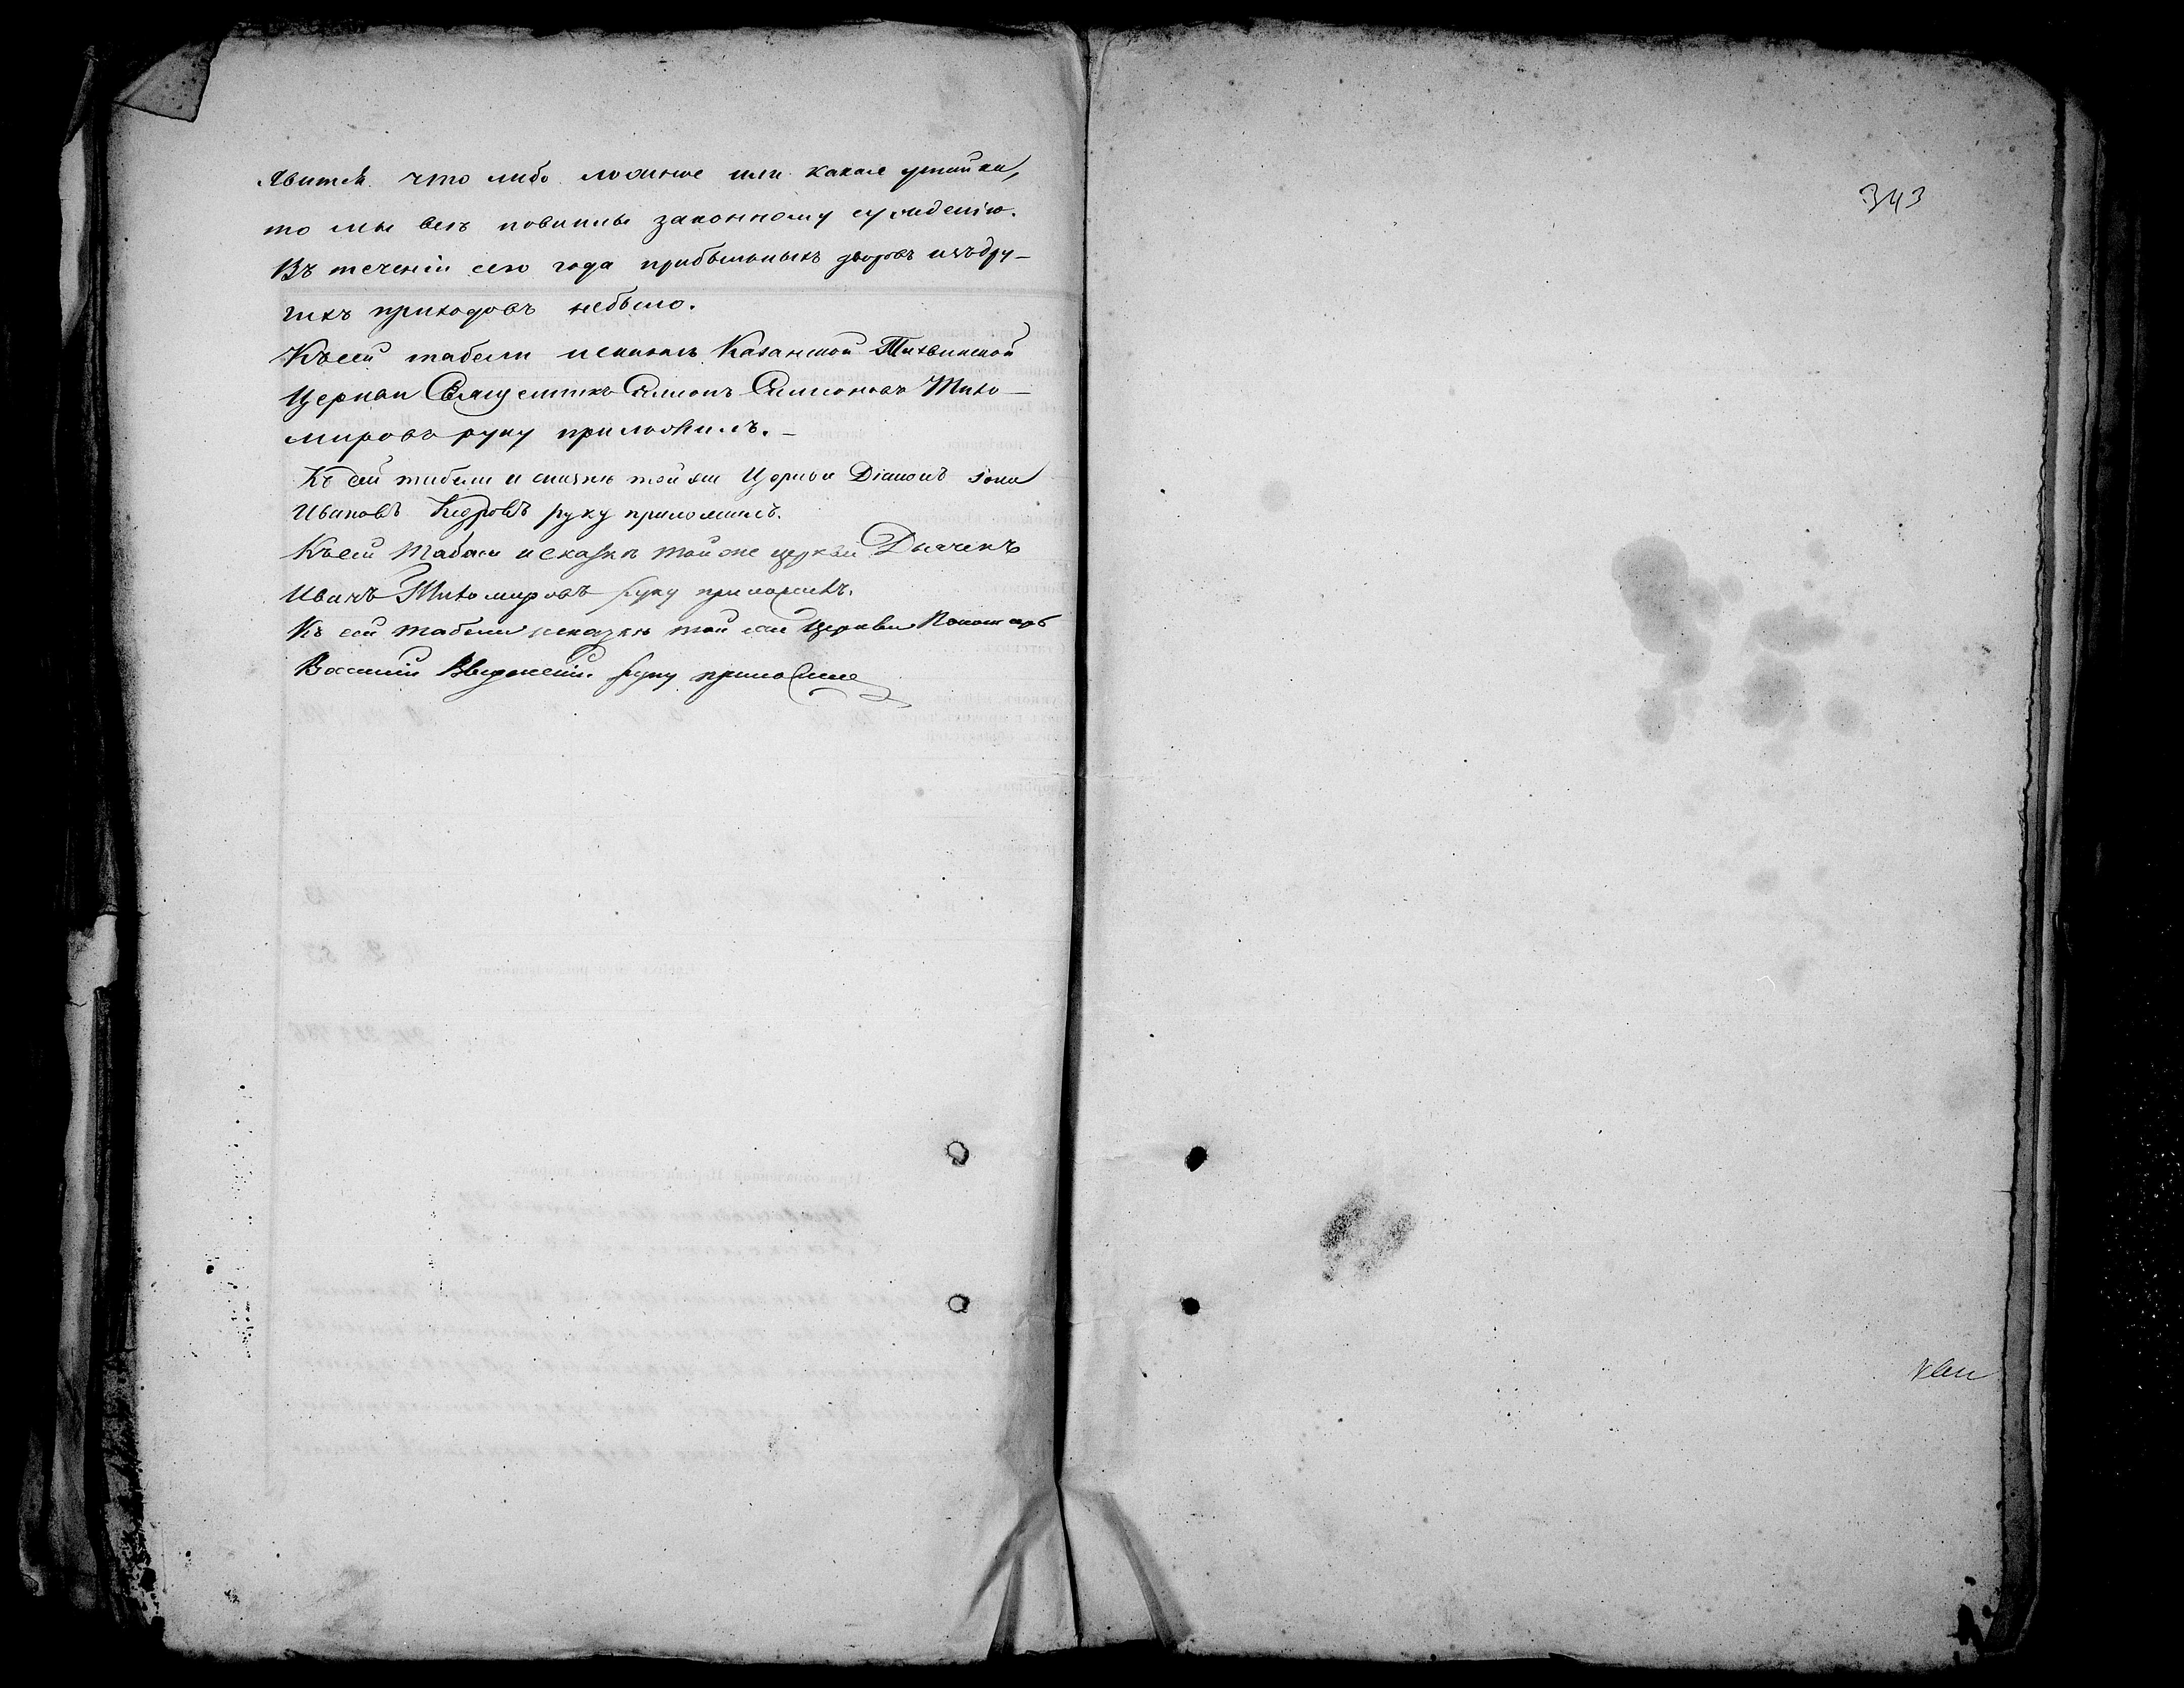 явится что либо ложное или какае утайка,
то мы всъ повинны законному суждению.
Въ теченіи сего года прибылыхъ дворовъ изъ дру-
гихъ приходовъ небыло.
Къ сей табели и сказкъ Казанской Тихвинской
Церкви Священникъ Симеонъ Симеоновъ Тихо-
мировъ руку приложилъ.-
Къ сей табели и сказкѣ той же Церкви Діаконъ Іона
Ивановъ Кедровъ руку приложилъ.
Къ сей табели и сказкѣ той же церкви Дьячекъ
Иванъ Тихомировъ руку приложилъ.
Къ сей табели и сказкѣ той же Церкви Пономарь
Василий руку приложилъ
343